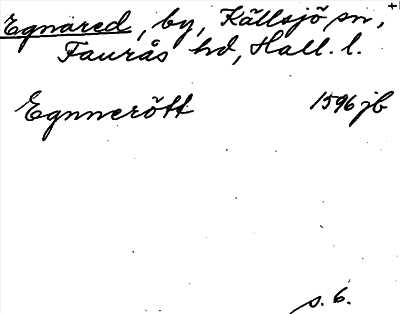 Egnared, by, Källsjö sn,
Faurås hd, Hall. l.
Egnnerött 1596 jb
s. 6.